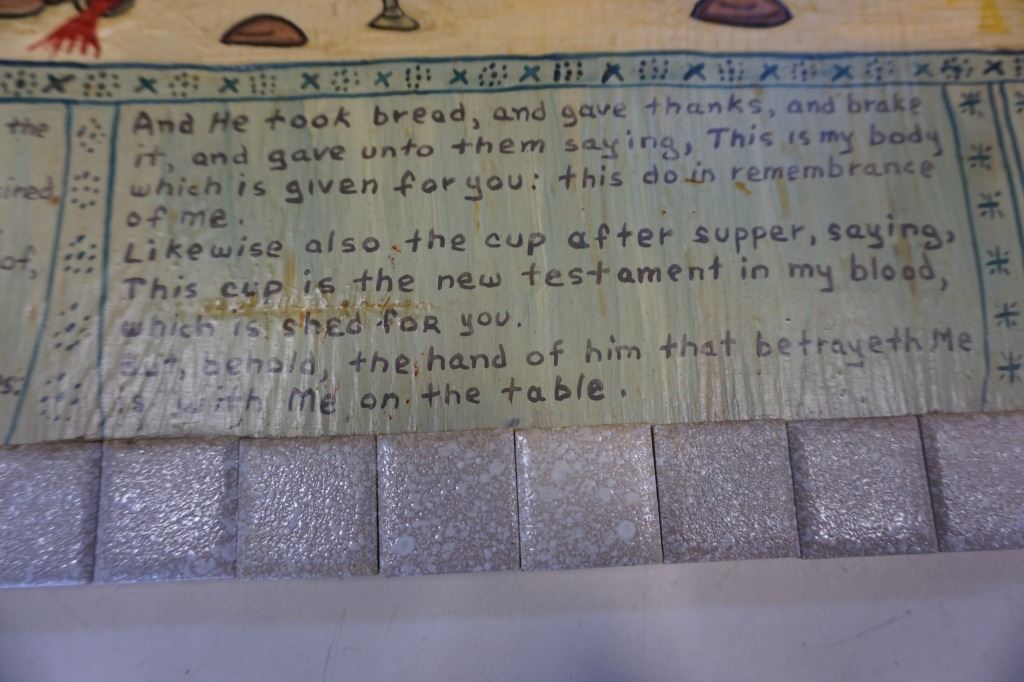 And He took bread, and gave thanks, and brake
it, and gave unto them saying, This is my body
which is given for you: this do in remembrance
of me.
Likewise also the cup after supper, saying,
This cup is the new testament in my blood,
which is shed for you.
But, behold, the hand of him that betrayeth Me
is with Me on the table.
the
ired
of,
s: